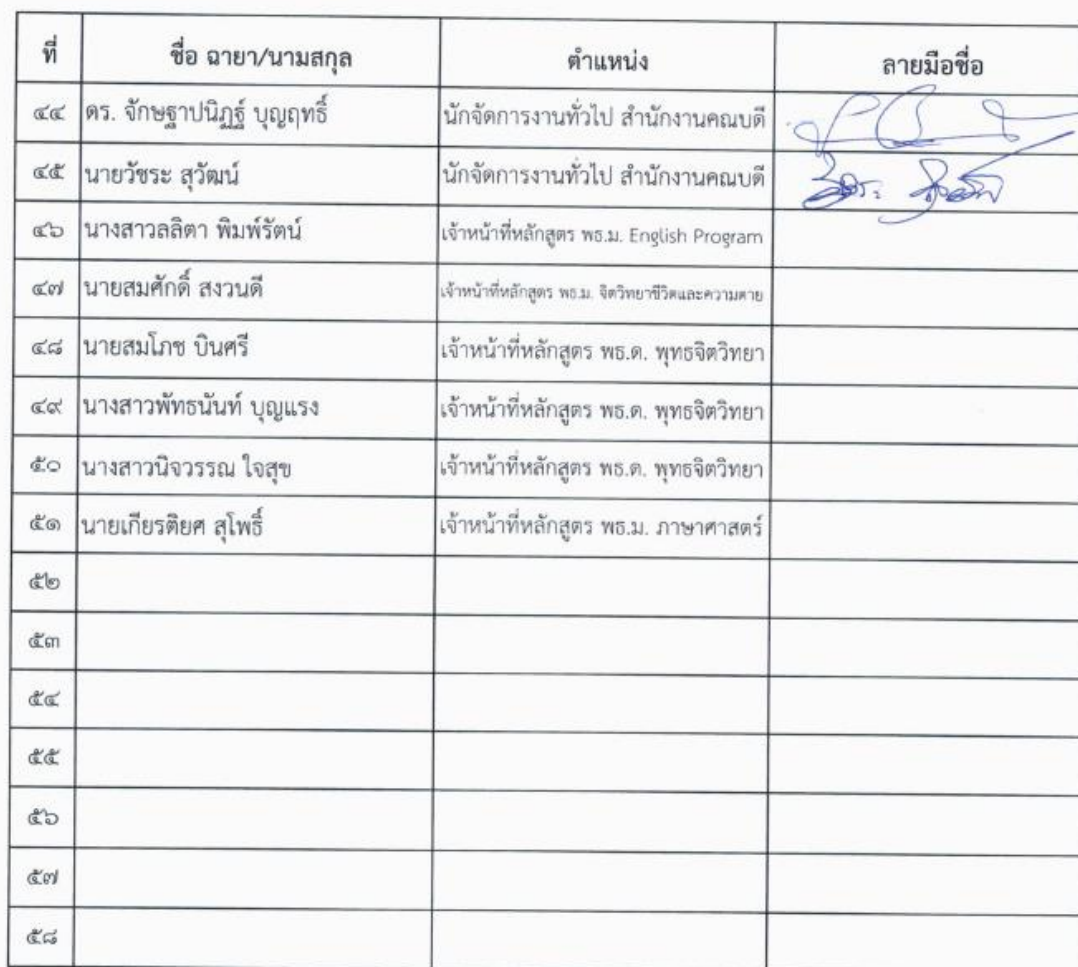 ที่ ชื่อ ฉายา/นามสกุล ตำแหน่ง ลายมือชื่อ
๔๔ ดร. จักษฐาปนิฏฐ์ บุญฤทธิ์ นักจัดการงานทั่วไป สำนักงานคณบดี
๔๕ นายวัชระ สุวัฒน์ นักจัดการงานทั่วไป สำนักงานคณบดี
๔๖ นางสาวลลิตา พิมพ์รัตน์ เจ้าหน้าที่หลักสูตร พธ.ม. English Program
๔๗ นายสมศักดิ์ สงวนดี เจ้าหน้าที่หลักสูตร พธ.ม. จิตวิทยาชีวิตและความตาย
๔๘ นายสมโภช บินศรี เจ้าหน้าที่หลักสูตร พธ.ด. พุทธจิตวิทยา
๔๙ นางสาวพัทธนันท์ บุญแรง เจ้าหน้าที่หลักสูตร พธ.ด. พุทธจิตวิทยา
๕๐ นางสาวนิจวรรณ ใจสุข เจ้าหน้าที่หลักสูตร พธ.ด. พุทธจิตวิทยา
๕๑ นายเกียรติยศ สุโพธิ์ เจ้าหน้าที่หลักสูตร พธ.ม. ภาษาศาสตร์
๕๒
๕๓
๕๔
๕๕
๕๖
๕๗
๕๘